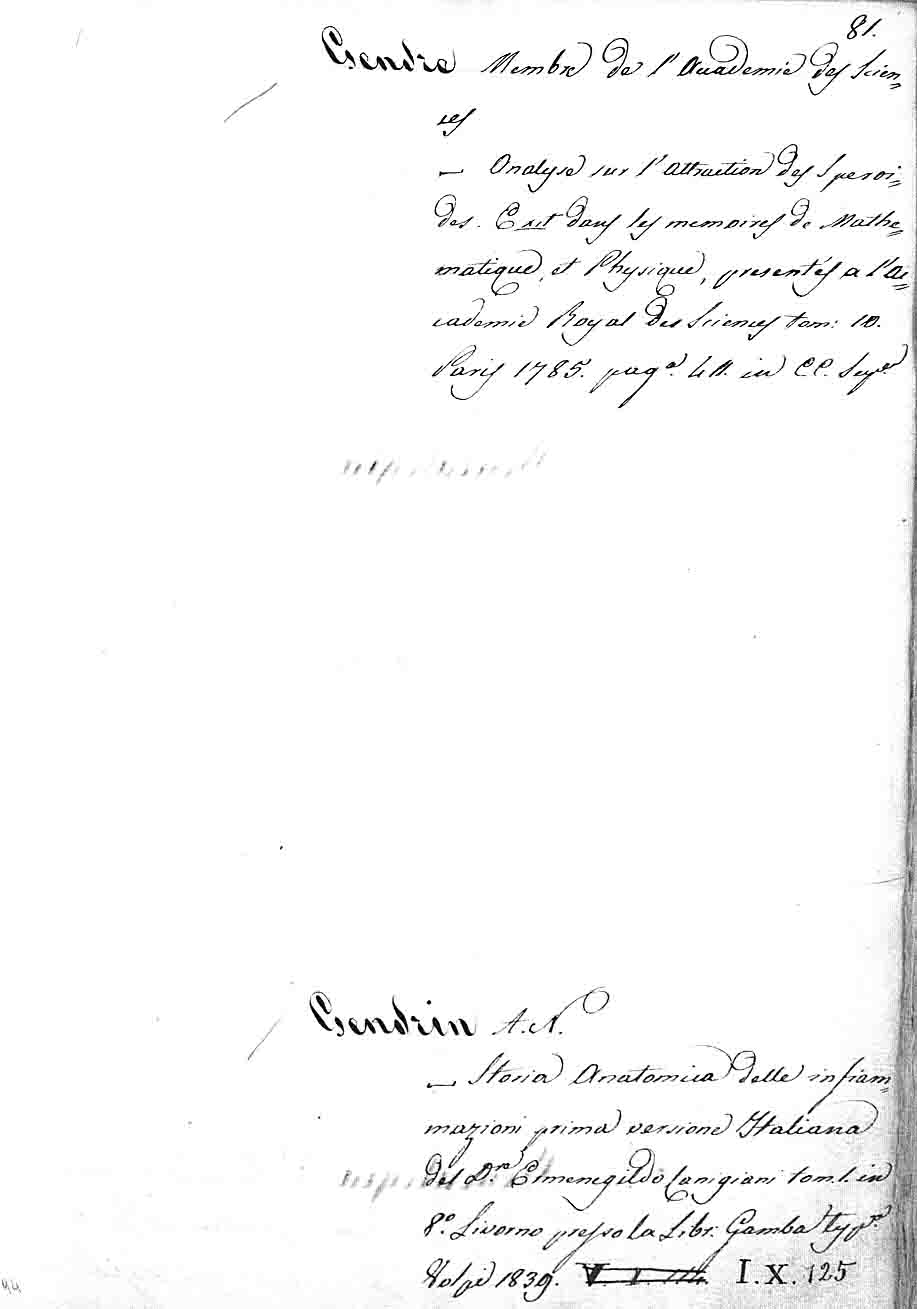 81.
Gendre Membre de l'Academie des Scien=
ces
— Analyse sur l'Attraction des Speroi=
des. Exit dans les memoires de Mathe=
matique, et Physique, presentés a l'Ac=
cademie Royal des Sciences tom: 10.
Paris 1785. pag.ª 411. in C.C. Seqe
Gendrin A. N.
— Storia Anatomica delle infiam=
mazioni prima versione Italiana
del D.re Ermenegildo Canigiani tom. 1. in
8.º Livorno presso la Libr: Gamba typ.ª
Volpi 1839. I.X.125
44